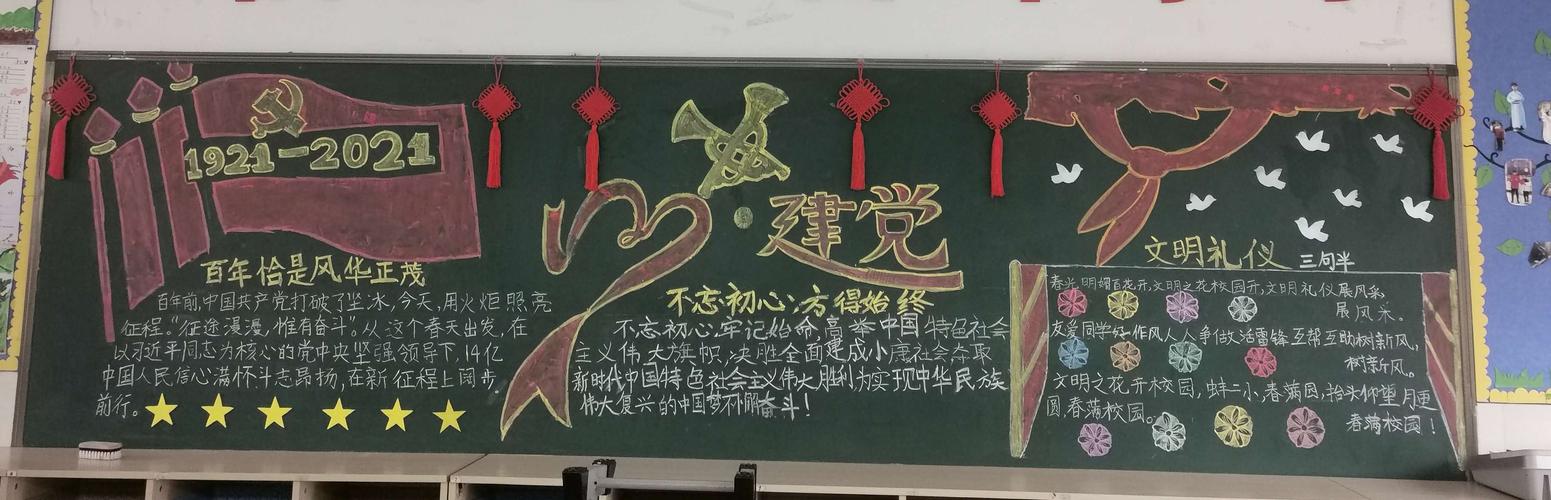 1921-2021
百年恰是风华正茂
百年前,中国共产党打破了坚冰,今天,用火炬照亮
征程。"征途漫漫,惟有奋斗"。从这个春天出发,在
以习近平同志为核心的党中央坚强领导下,14亿
中国人民信心满怀斗志昂扬,在新征程上阔步
前行。
·建党
不忘初心;方得始终
不忘初心,牢记始命,高举中国特色社会
主义伟大旗帜,决胜全面建成小康社会夺取
新时代中国特色社会主义伟大胜利为实现中华民族
伟大复兴的中国梦不懈奋斗!
文明礼仪 三句半
春光明媚百花开,文明之花校园开,文明礼仪展风采,
展风采。
友爱同学好作风人人争做活雷锋互帮互助树新风,
树新风。
文明之花开校园,蚌二小,春满园,抬头仰望月更
圆,春满校园。
春满校园!